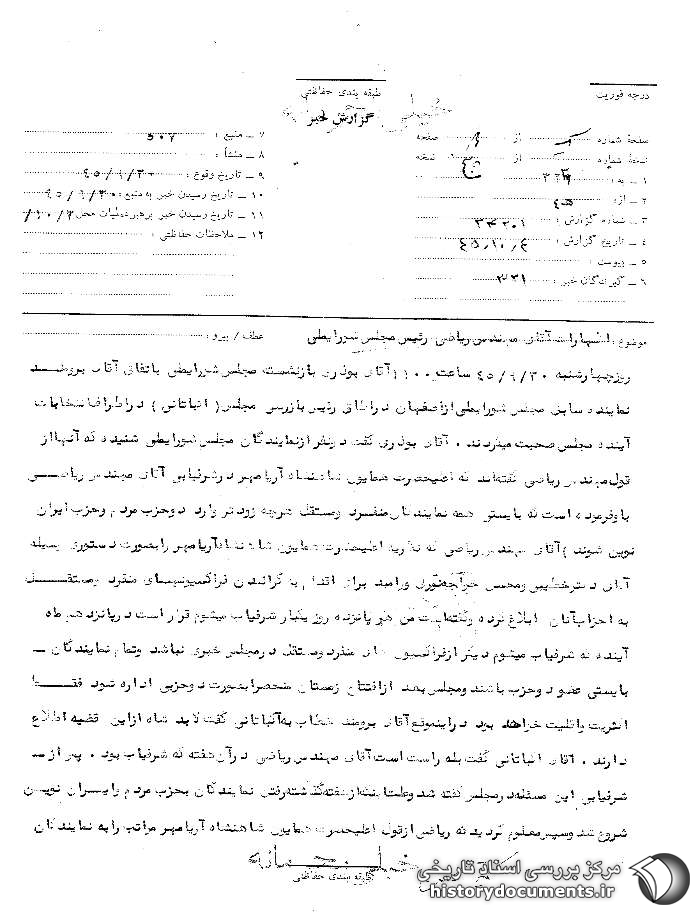 درجه فوریت
طبقه بندی حفاظتی
گزارش خبر
صفحهٔ شماره از صفحه
نسخهٔ شماره از نسخه
۱ ـ به :
۲ ـ از :
۳ ـ شماره گزارش :
۴ ـ تاریخ گزارش : ۴۵٫۱۰٫۴
۵ ـ پیوست :
۶ ـ گیرندگان خبر : ۳۳۱
۷ ـ منبع : ۵۰۷
۸ ـ منشأ :
۹ ـ تاریخ وقوع : ۴۵/۹/۳۰
۱۰ ـ تاریخ رسیدن خبر به منبع : ۴۵/۹/۳۰
۱۱ ـ تاریخ رسیدن خبر برهبر عملیات محل
۱۲ ـ ملاحظات حفاظتی :
موضوع : اظهارات آقای مهندس ریاضی رئیس مجلس شورایملی
عطف / پیرو :
روزچهارشنبه ۴۵/۹/۳۰ ساعت ۱۱۰۰ آقای بوذری بازنشسته مجلس شورایملی باتفاق آقای برومند
نماینده سابق مجلس شورایملی ازاصفهان دراطاق رئیس بازرسی مجلس ( انباتانی ) دراطراف انتخابات
آینده مجلس صحبت میکردند . آقای بوذری گفت دونفر ازنمایندگان مجلس شورایملی شنیده که آنها از
قول مهندس ریاضی گفته‌اند که اعلیحضرت همایون شاهنشاه آریامهر درشرفیابی آقای مهندس ریاضی
باوفرموده است که بایستی همه نمایندگان منفرد ومستقل هرچه زودتر وارد دوحزب مردم وحزب ایران
نوین شوند ) آقای مهندس ریاضی که نظریه اعلیحضرت همایون شاهنشاه آریامهر رابصورت دستوری بوسیله
آقای دکترخطیبی ومحسن خواجه‌نوری ورامبد برای اقدام به گراندن فراکسیونهای منفرد ومستقل
به احزاب آنان ابلاغ کرده وگفته‌است من هر پانزده روز یکبار شرفیاب میشوم قرار است درپانزدهم ماه
آینده که شرفیاب میشوم دیگر ازفراکسیون های منفرد ومستقل درمجلس خبری نباشد وتمام نمایندگان ـ
بایستی عضو دوحزب باشند ومجلس بعد ازافتتان زمستان منحصرا بصورت دوحزبی اداره شود فقط
اکثریت واقلیت خواهد بود دراینموقع آقای برومند خطاب به انباتانی گفت لابد شما ازاین قضیه اطلاع
دارند . آقای انباتانی گفت بله راست است آقای مهندس ریاضی درآن هفته که شرفیاب بود . پس از ـ
شرفیابی این مسئله درمجلس گفته شد ومطمئنا ازهفته گذشته رفتن نمایندگان بحزب مردم وایران نوین
شروع شد وسپس معلوم گردید که ریاضی ازقول اعلیحضرت همایون شاهنشاه آریامهر مراتب را به نمایندگان
طبقه بندی حفاظتی
مرکز بررسی اسناد تاریخی
historydocuments.ir